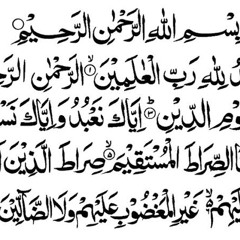 بِسْمِ اللهِ الرَّحْمٰنِ الرَّحِيْمِ
دُ لِلهِ رَبِّ الْعٰلَمِيْنَ ۙ۝۱ الرَّحْمٰنِ الرَّحِ
وْمِ الدِّيْنِ ؕ۝۳ اِيَّاكَ نَعْبُدُ وَ اِيَّاكَ نَسْ
ا الصِّرَاطَ الْمُسْتَقِيْمَ ۙ۝۵ صِرَاطَ الَّذِيْنَ ا
لَيْهِمْ ۙ۝ غَيْرِ الْمَغْضُوْبِ عَلَيْهِمْ وَلَا الضَّآلِّيْنَ